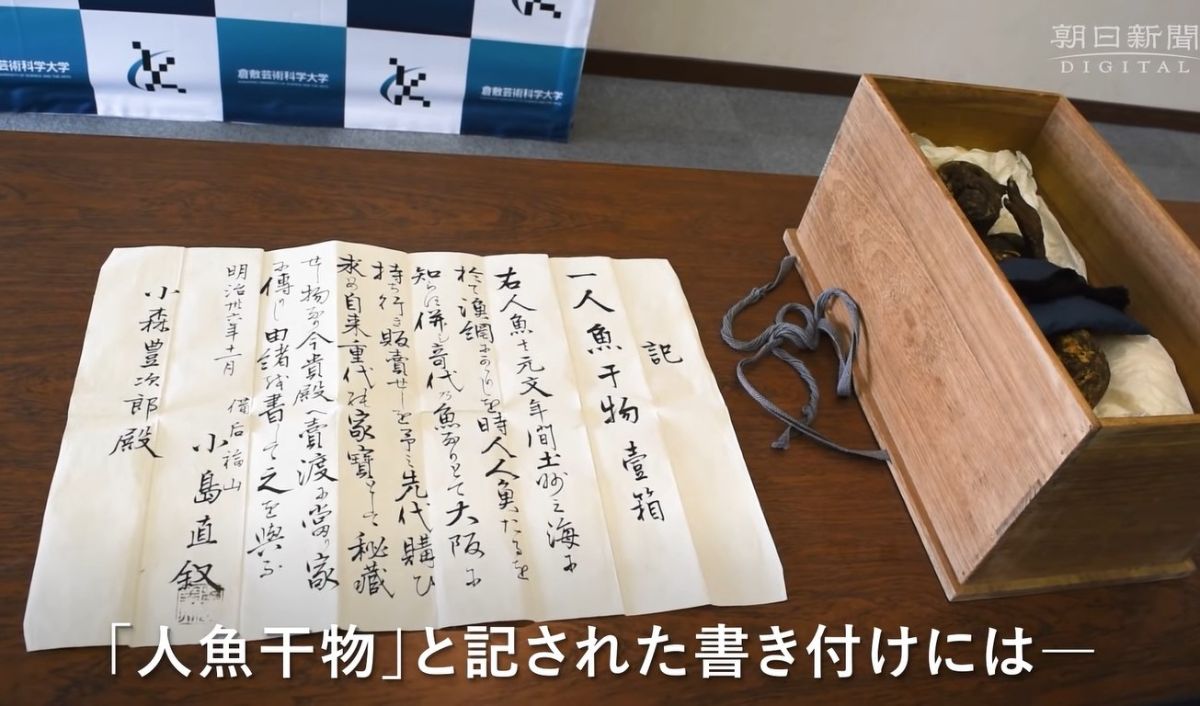 朝日新聞
DIGITAL
倉敷芸術科学大学
倉敷芸術科学大学
記
一人魚干物 壹箱
右人魚は元文年間土州之海に
於て漁網にかゝりしを時人人魚たるを
知らす併し奇代の魚なりとて大阪に
持ち行き販賣せしを予之先代購ひ
求め自来重代の家寶として秘藏
せし物なり今貴殿へ賣渡に當り家
に傳りし由緒を書して之を與ふ
明治卅六年十一月
備后福山
小島直叙
小森豊次郎殿
「人魚干物」と記された書き付けには―